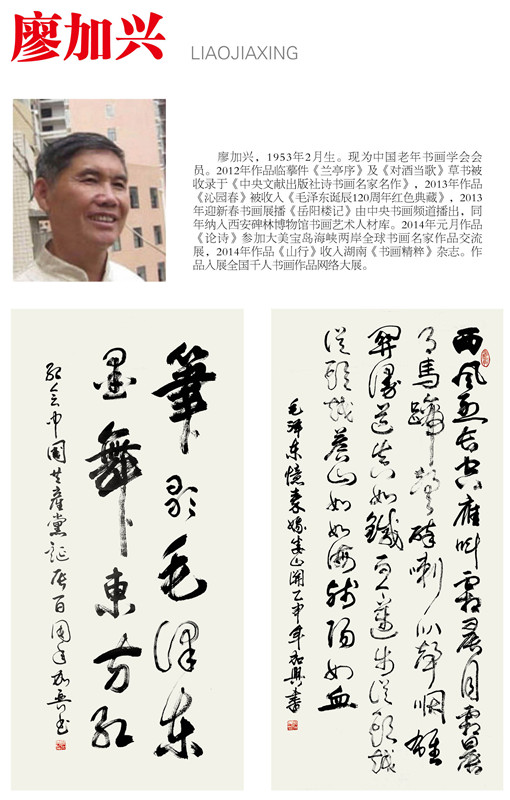 廖加兴 LIAOJIAXING
廖加兴，1953年2月生。现为中国老年书画学会会
员。2012年作品临摹件《兰亭序》及《对酒当歌》草书被
收录于《中央文献出版社诗书画名家名作》，2013年作品
《沁园春》被收入《毛泽东诞辰120周年红色典藏》，2013
年迎新春书画展播《岳阳楼记》由中央书画频道播出，同
年纳入西安碑林博物馆书画艺术人材库。2014年元月作品
《论诗》参加大美宝岛海峡两岸全球书画名家作品交流
展，2014年作品《山行》收入湖南《书画精粹》杂志。作
品入展全国千人书画作品网络大展。
筆歌毛澤東
墨舞東方紅
紀念中國共產黨誕辰百周年加興書
西風烈長空雁叫霜晨月霜晨
月馬蹄聲碎喇叭聲咽雄
關漫道真如鐵而今邁步從頭越
從頭越蒼山如海殘陽如血
毛澤東憶秦娥婁山關乙申年加興書